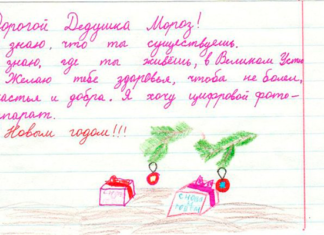 Дорогой Дедушка Мороз!
знаю, что ты существуешь.
знаю, где ты живёшь, в Великом Устю
Желаю тебе здоровья, чтоба не болел,
частья и добра. Я хочу цифровой фото-
парат.
Новым годом!!!
С НОВЫМ